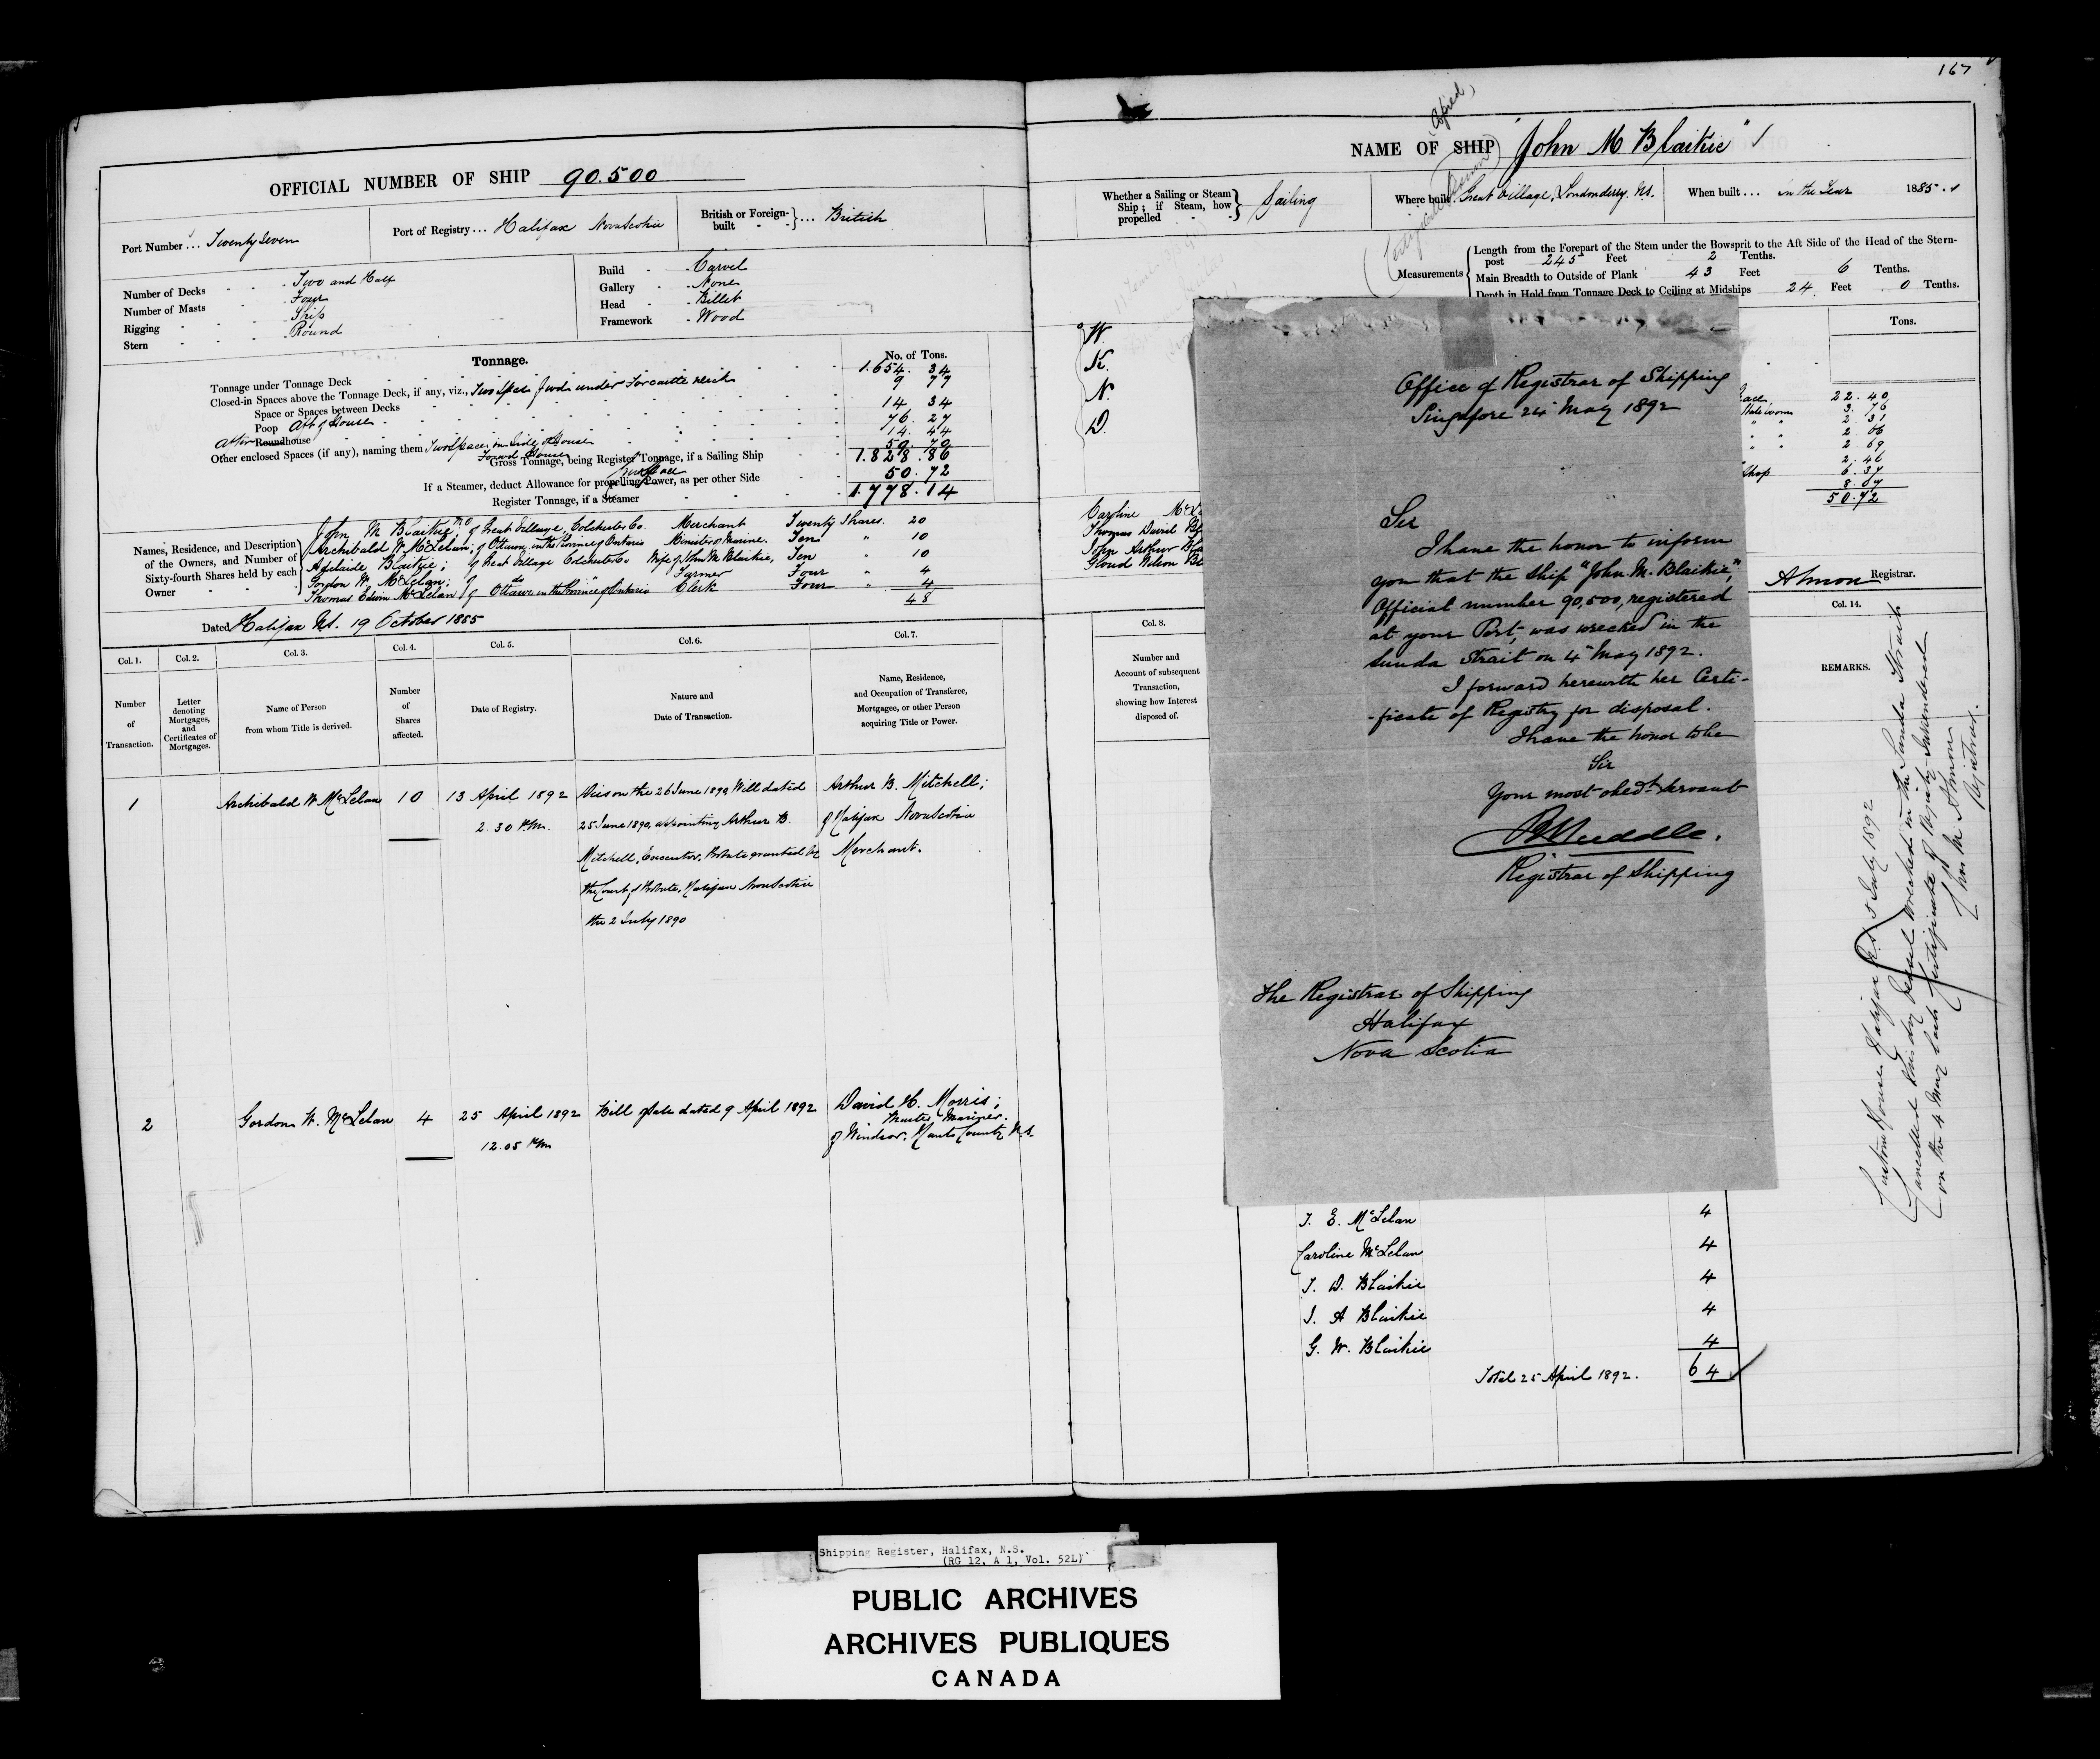 167
OFFICIAL NUMBER OF SHIP 90.500
Port Number ... Twenty Seven
Port of Registry ... Halifax Nova Scotia
British or Foreign-built } ... British
Number of Decks - Two and Half
Number of Masts - Four
Rigging - Ship
Stern - Round
Build - Carvel
Gallery - None
Head - Billet
Framework - Wood
Tonnage.
No. of Tons.
Tonnage under Tonnage Deck 1.654. 34
Closed-in Spaces above the Tonnage Deck, if any, viz., Two Spaces fwd under Forcastle deck 9 77
Space or Spaces between Decks 14 34
Poop Aft of House 76. 27
After Roundhouse 14. 44
Other enclosed Spaces (if any), naming them Two Spaces in Side of House 50. 70
Forwd House
Gross Tonnage, being Register Tonnage, if a Sailing Ship 1.828.86
If a Steamer, deduct Allowance for propelling Power, as per other Side 50.72
Register Tonnage, if a Steamer 1.778.14
Names, Residence, and Description of the Owners, and Number of Sixty-fourth Shares held by each Owner
John M Blaikie; of Great Village, Colchester Co. Merchant Twenty Shares. 20
Archibald W. McLelan; of Ottawa in the Province of Ontario Minister of Marine. Ten " 10
Adelaide Blaikie; of Great Village Colchester Co Wife of John M Blaikie, Ten " 10
Gordon W. McLelan; of do " Farmer Four " 4
Thomas Edwin McLelan of Ottawa in the Province of Ontario Clerk Four " 4
48
Dated Halifax N.S. 19 October 1885
Col. 1. Col. 2. Col. 3. Col. 4. Col. 5. Col. 6. Col. 7.
Number of Transaction.
Letter denoting Mortgages, and Certificates of Mortgages.
Name of Person from whom Title is derived.
Number of Shares affected.
Date of Registry.
Nature and Date of Transaction.
Name, Residence, and Occupation of Transferee, Mortgagee, or other Person acquiring Title or Power.
1 Archibald W. McLelan 10 13 April 1892 Died on the 26 June 1890, Will dated Arthur B. Mitchell;
2.30 P.M. 25 June 1890, appointing Arthur B. of Halifax Nova Scotia
Mitchell, Executor, Probate granted by Merchant.
the Court of Probate, Halifax Nova Scotia
the 2 July 1890
2 Gordon W. McLelan 4 25 April 1892 Bill of Sale dated 9 April 1892 David H. Morris;
12.05 P.M. Master Mariner.
of Windsor, Hants County N.S.
NAME OF SHIP "John M Blaikie"
Whether a Sailing or Steam Ship; if Steam, how propelled } Sailing
Where built Great Village, Londonderry, N.S.
When built ... in the Year 1885.
Measurements
Length from the Forepart of the Stem under the Bowsprit to the Aft Side of the Head of the Stern-
post 245 Feet 2 Tenths.
Main Breadth to Outside of Plank 43 Feet 6 Tenths.
Depth in Hold from Tonnage Deck to Ceiling at Midships 24 Feet 0 Tenths.
Tons.
W.
K.
N.
D.
22.40
State rooms 3.76
2.31
2.06
2.69
2.46
Shop 6.37
8.67
50.72
Caroline McL
Thomas David Bl
John Arthur Bla
Gloud Wilson Bl
Almon Registrar.
Col. 8.
Number and Account of subsequent Transaction, showing how Interest disposed of.
Col. 14.
REMARKS.
Office of Registrar of Shipping
Singapore 24 May 1892
Sir
I have the honor to inform
you that the Ship "John M. Blaikie",
Official number 90,500, registered
at your Port, was wrecked in the
Sunda Strait on 4th May 1892.
I forward herewith her Certi-
-ficate of Registry for disposal.
I have the honor to be
Sir
Your most obedt. Servant
Registrar of Shipping
The Registrar of Shipping
Halifax
Nova Scotia
Custom House Halifax N.S. 5 July 1892
Cancelled this day Vessel wrecked in the Sunda Strait
on the 4 May last Certificate of Registry Surrendered
Almon
Registrar.
T. E. McLelan 4
Caroline McLelan 4
T. D. Blaikie 4
J. A Blaikie 4
G. W. Blaikie 4
Total 25 April 1892. 64
Shipping Register, Halifax, N.S.
(RG 12, A 1, Vol. 52L)
PUBLIC ARCHIVES
ARCHIVES PUBLIQUES
CANADA